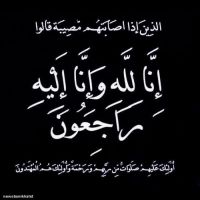 الذين إذا اصابتهم مصيبة قالوا
إِنَّا لِلَّهِ وَإِنَّا إِلَيْهِ
رَاجِعُونَ
أُولَئِكَ عَلَيْهِمْ صَلَوَاتٌ مِنْ رَبِّهِمْ وَرَحْمَةٌ وَأُولَئِكَ هُمُ الْمُهْتَدُونَ